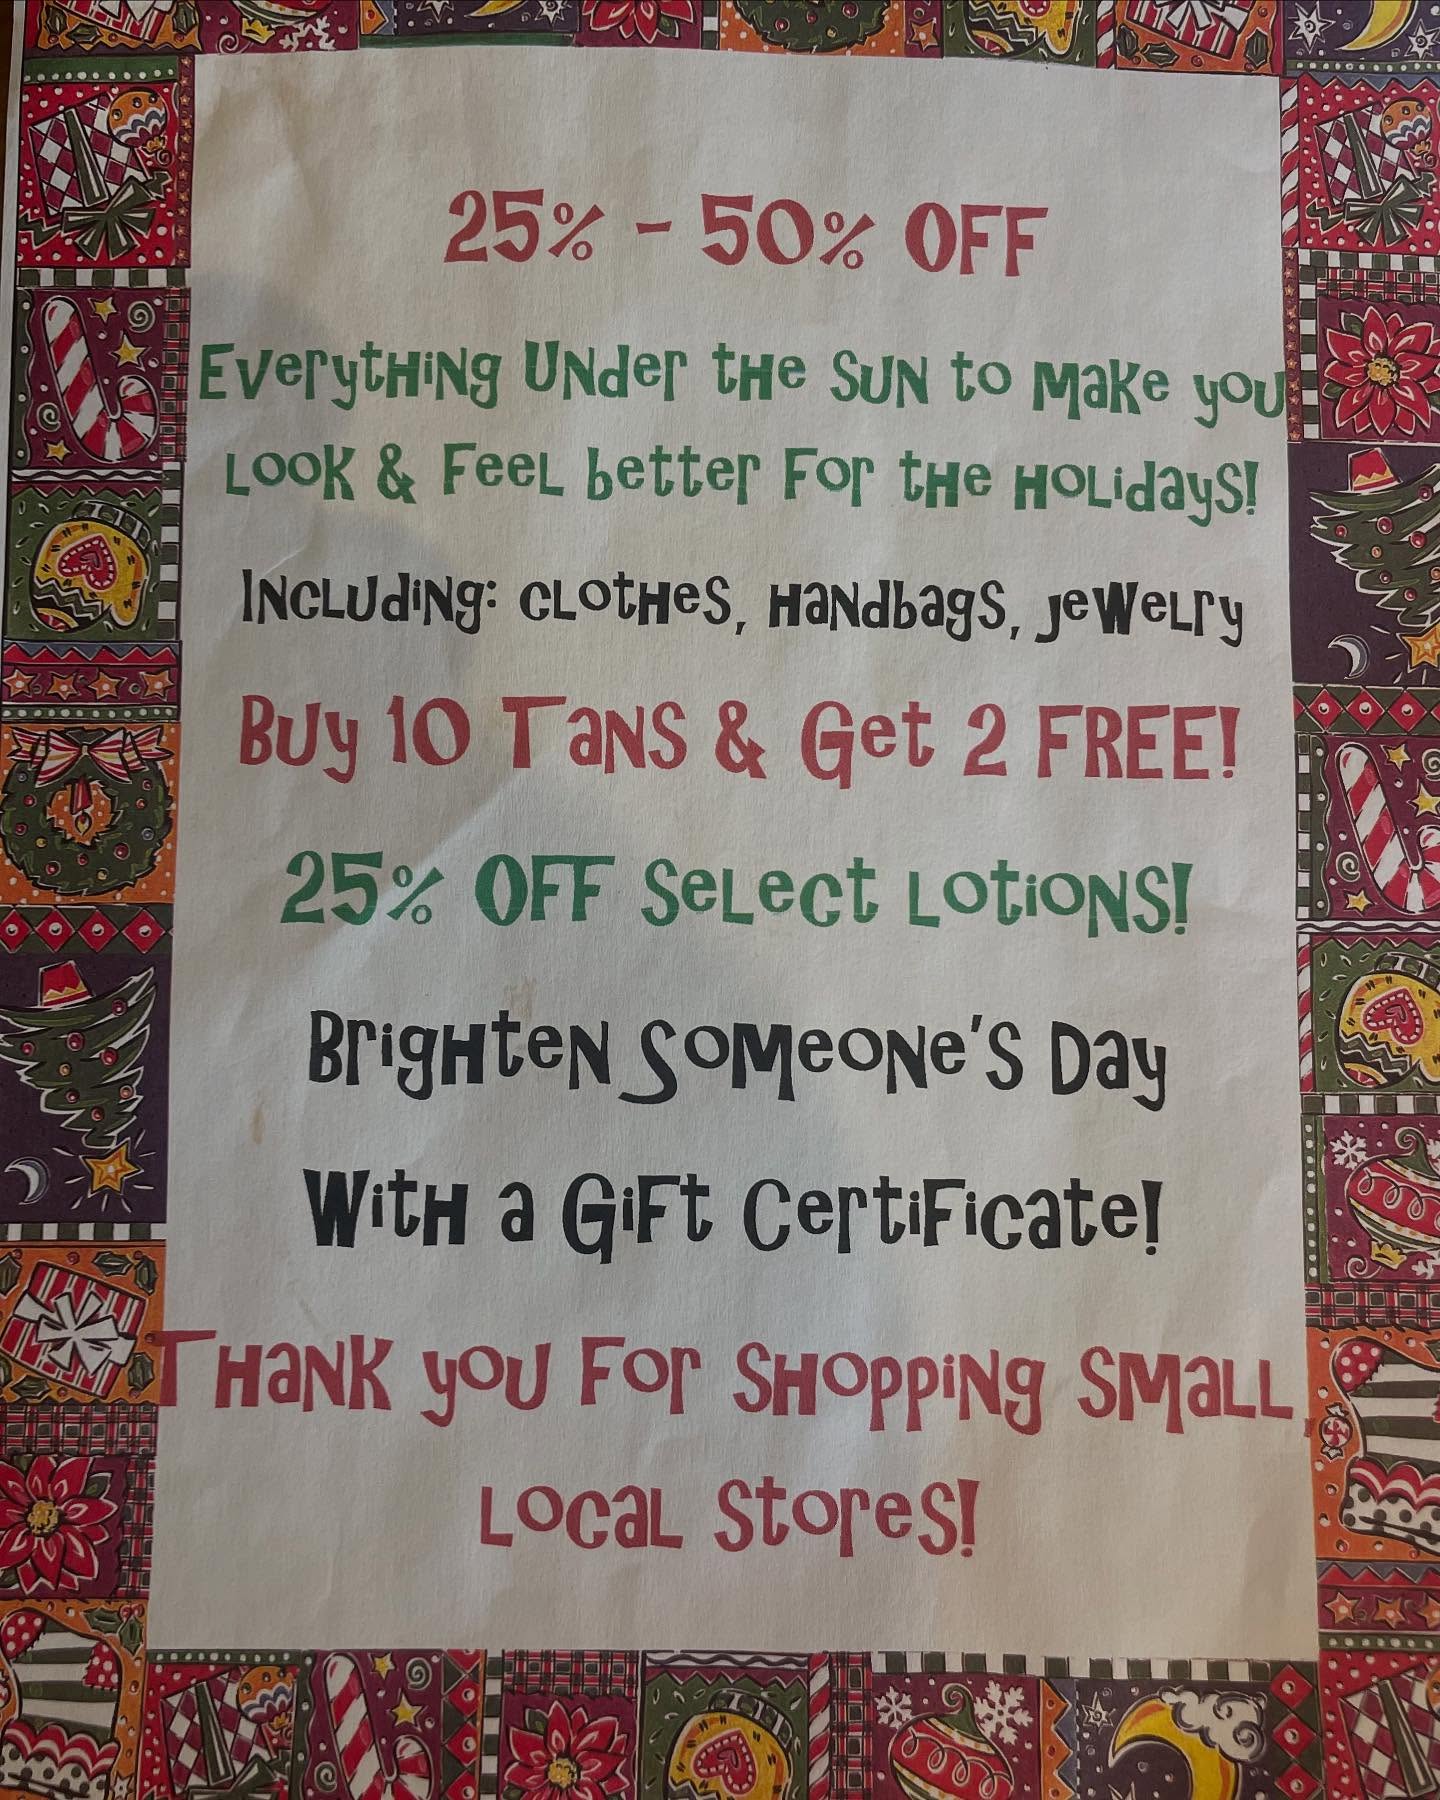 25% - 50% OFF
Everything Under the Sun to Make you
Look & Feel better For the Holidays!
Including: Clothes, Handbags, Jewelry
Buy 10 Tans & Get 2 FREE!
25% OFF Select Lotions!
Brighten Someone's Day
With a Gift Certificate!
Thank you For Shopping Small,
Local Stores!